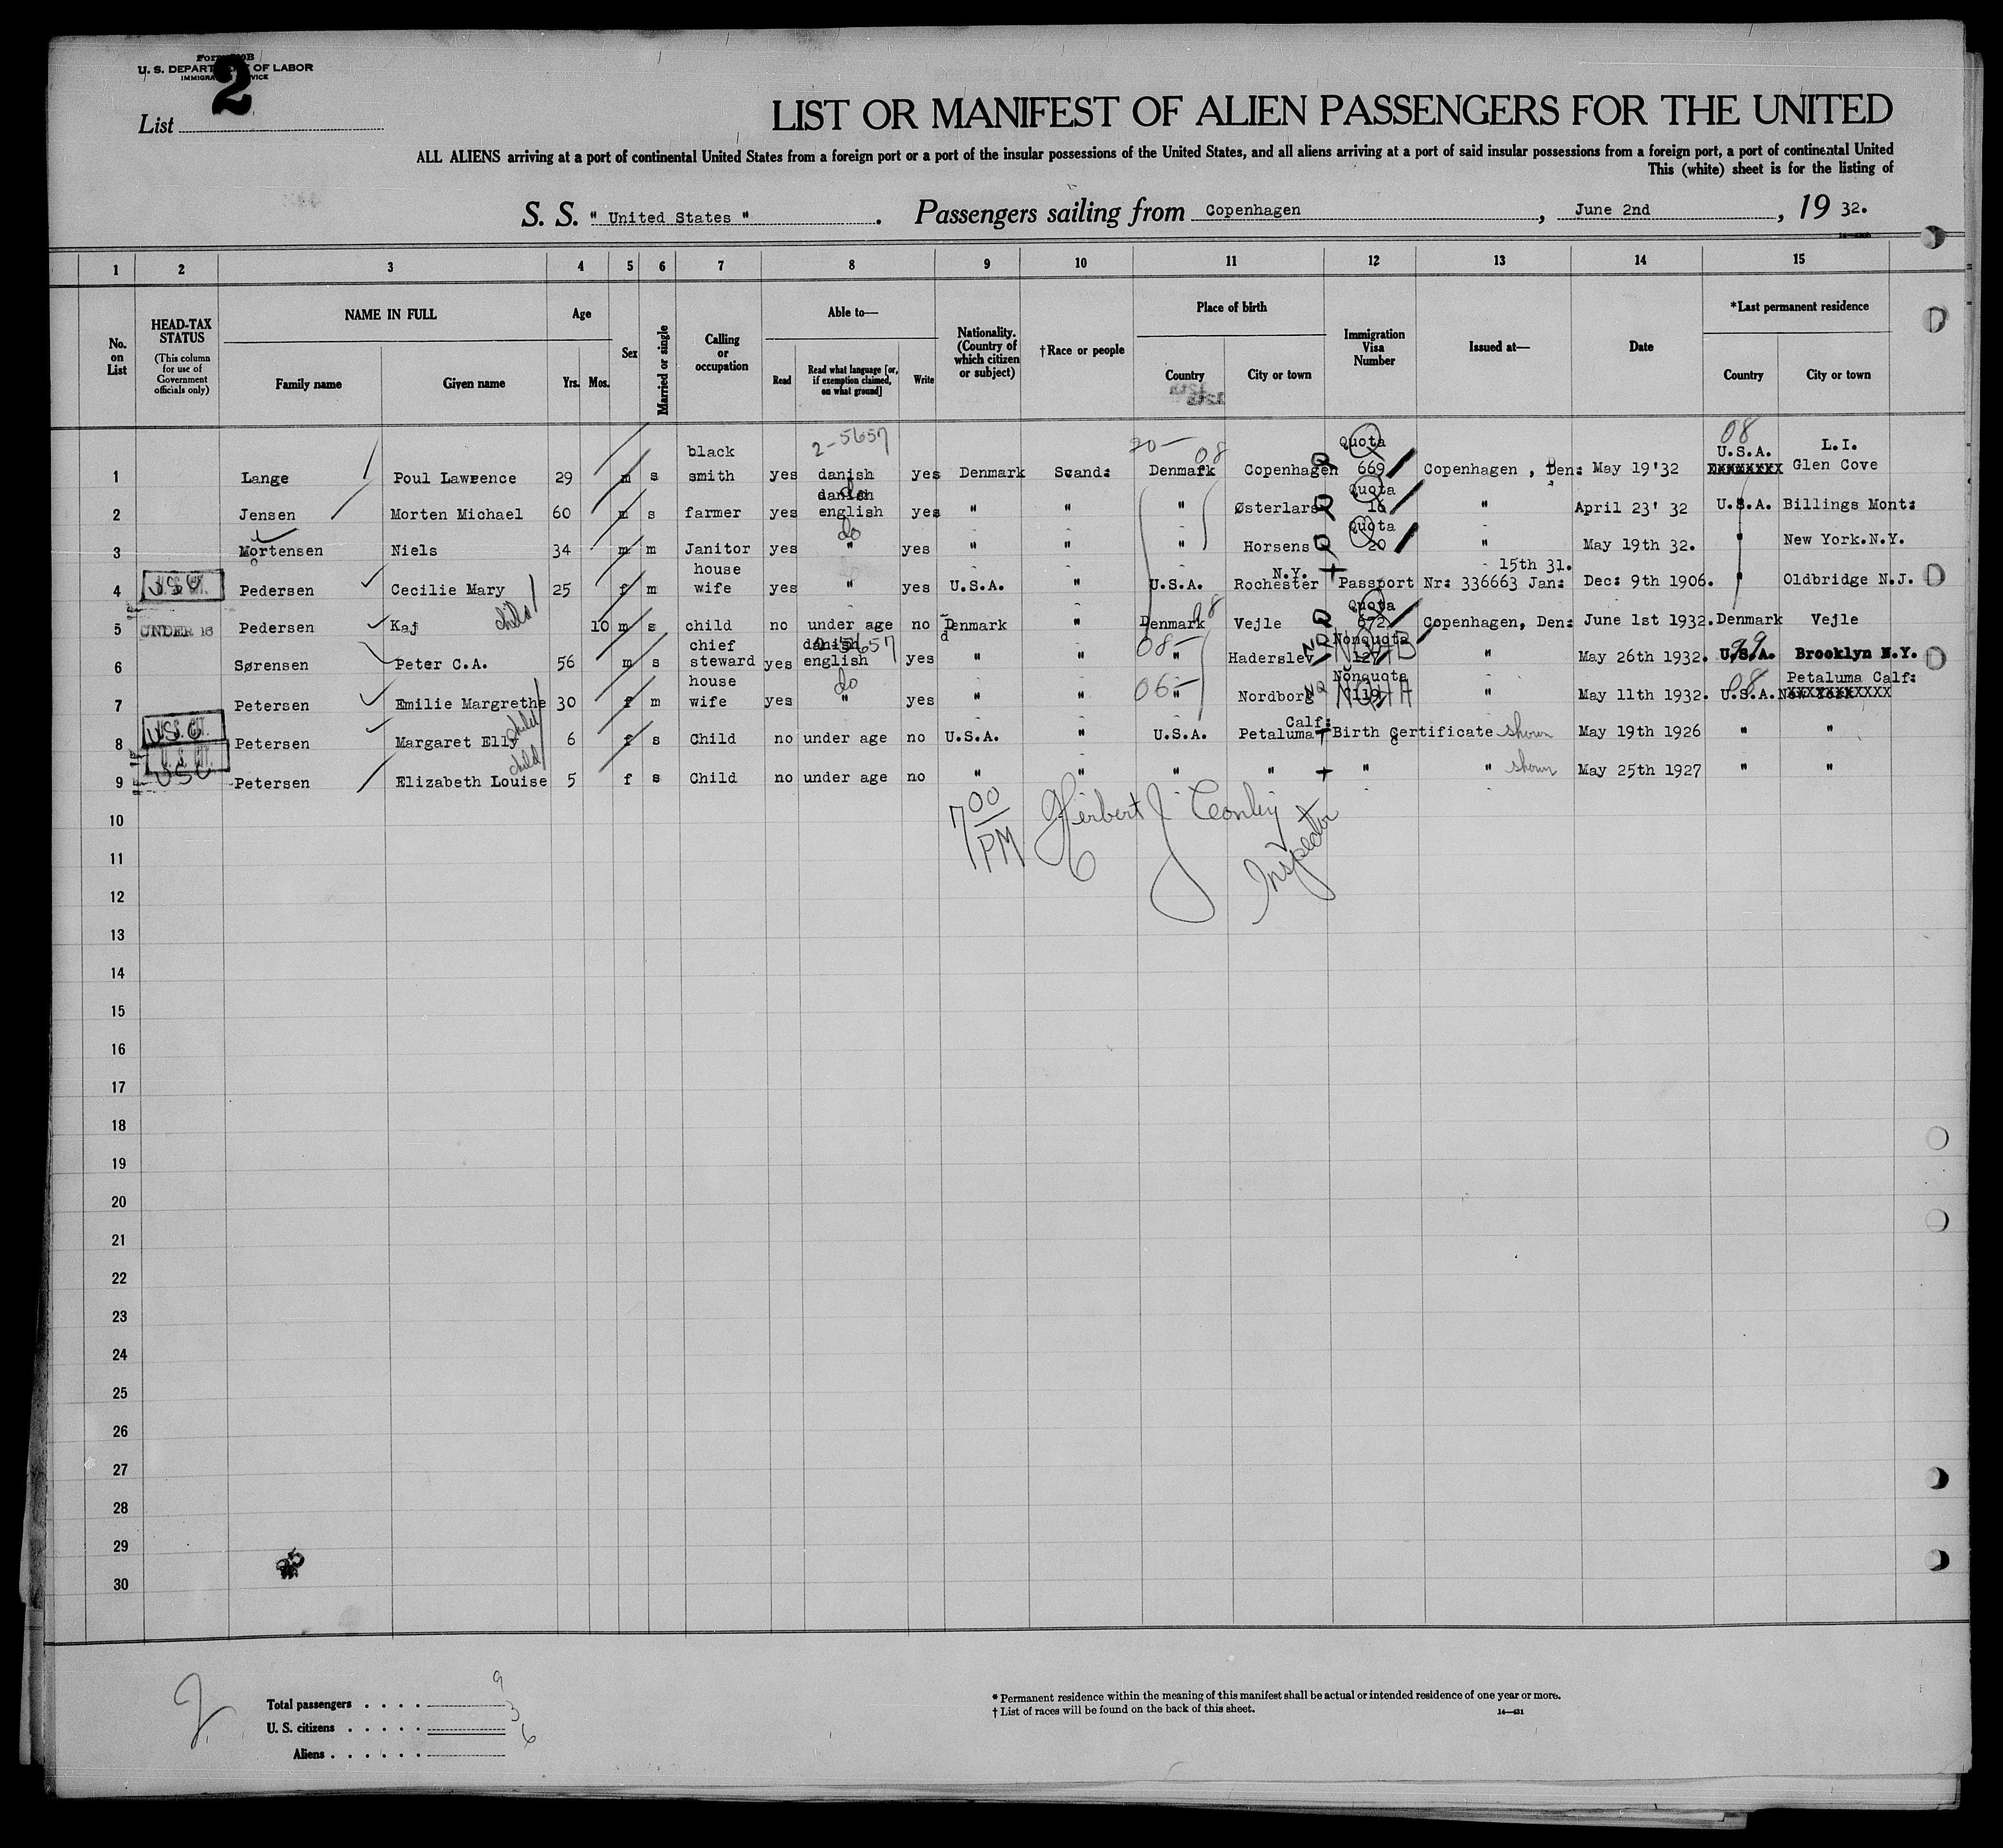 Form 500B
U. S. DEPARTMENT OF LABOR
IMMIGRATION SERVICE
2
List
LIST OR MANIFEST OF ALIEN PASSENGERS FOR THE UNITED
ALL ALIENS arriving at a port of continental United States from a foreign port or a port of the insular possessions of the United States, and all aliens arriving at a port of said insular possessions from a foreign port, a port of continental United
This (white) sheet is for the listing of
S. S. " United States ". Passengers sailing from Copenhagen, June 2nd, 19 32.
1 2 3 4 5 6 7 8 9 10 11 12 13 14 15
No. on List
HEAD-TAX STATUS (This column for use of Government officials only)
NAME IN FULL Family name Given name
Age Yrs. Mos.
Sex
Married or single
Calling or occupation
Able to— Read Read what language [or, if exemption claimed, on what ground] Write
Nationality. (Country of which citizen or subject)
†Race or people
Place of birth Country City or town
Immigration Visa Number
Issued at—
Date
*Last permanent residence Country City or town
1 Lange Poul Lawrence 29 m s black smith yes 2-5657 danish yes Denmark Scand: 20- 08 Denmark Copenhagen Q Quota 669 Copenhagen, Den: May 19'32 08 U.S.A. L.I. Glen Cove
2 Jensen Morten Michael 60 m s farmer yes danish do english yes " " " Østerlars Q Quota 16 " April 23' 32 U.S.A. Billings Mont:
3 Mortensen Niels 34 m m Janitor yes do " yes " " " Horsens Q Quota 20 " May 19th 32. " New York.N.Y.
4 U.S. CIT. USC Pedersen Cecilie Mary 25 f m house wife yes " yes U.S.A. " U.S.A. N.Y. Rochester + Passport Nr: 336663 Jan: 15th 31. Dec: 9th 1906. " Oldbridge N.J.
5 UNDER 16 Pedersen Kaj child 10 m s child no under age no Denmark " Denmark 08 Vejle Q Quota 672 Copenhagen, Den: June 1st 1932. Denmark Vejle
6 Sørensen Peter C.A. 56 m s chief steward yes danish 2-5657 english yes " " 08- " Haderslev NQ Nonquota 127 NQ4B " May 26th 1932. 99 U.S.A. Brooklyn N.Y.
7 Petersen Emilie Margrethe 30 f m house wife yes do " yes " " 06- " Nordborg NQ Nonquota 119 NQ4A " May 11th 1932. 08 U.S.A. New York Petaluma Calf:
8 U.S. CIT. USC Petersen Margaret Elly child 6 f s Child no under age no U.S.A. " U.S.A. Petaluma Calf: + Birth Certificate shown May 19th 1926 " "
9 U.S. CIT. USC Petersen Elizabeth Louise child 5 f s Child no under age no " " " " + " " shown May 25th 1927 " "
7 00 PM Herbert J Conley Inspector
10
11
12
13
14
15
16
17
18
19
20
21
22
23
24
25
26
27
28
29
30
Total passengers . . . . 9
U. S. citizens . . . . . 3
Aliens . . . . . . 6
* Permanent residence within the meaning of this manifest shall be actual or intended residence of one year or more.
† List of races will be found on the back of this sheet.